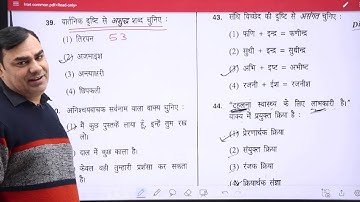 39. वार्तनिक दृष्टि से अशुद्ध शब्द चुनिए :
(1) तिरपन 53
(2) अजमाइश
(3) अन्त्याक्षरी
(4) छिपकली
अनिश्चयवाचक सर्वनाम वाला वाक्य चुनिए :
(1) मैं कुछ पुस्तकें लाया हूँ, इन्हें तुम रख लो।
दाल में कुछ काला है।
केवल वही तुम्हारी प्रशंसा कर सकता है।
43. संधि विच्छेद की दृष्टि से असंगत चुनिए :
(1) फणि + इन्द्र = फणीन्द्र
(2) सुधी + इन्द्र = सुधीन्द्र
(3) अभि + इष्ट = अभीष्ट
(4) रजनी + ईश = रजनीश
44. "टहलना स्वास्थ्य के लिए लाभकारी है।"
वाक्य में प्रयुक्त क्रिया है :
(1) प्रेरणार्थक क्रिया
(2) संयुक्त क्रिया
(3) रंजक क्रिया
(4) क्रियार्थक संज्ञा